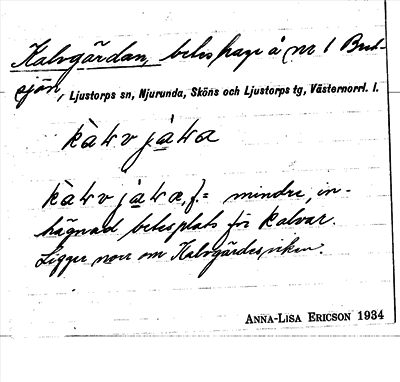 Kalvgärdan, beteshage å nr 1 Bred-
sjön, Ljustorps sn, Njurunda, Sköns och Ljustorps tg, Västernorrl. l.
mindre, in-
hägnad betesplats för kalvar.
Ligger norr om Kalvgärdesviken.
ANNA-LISA ERICSON 1934